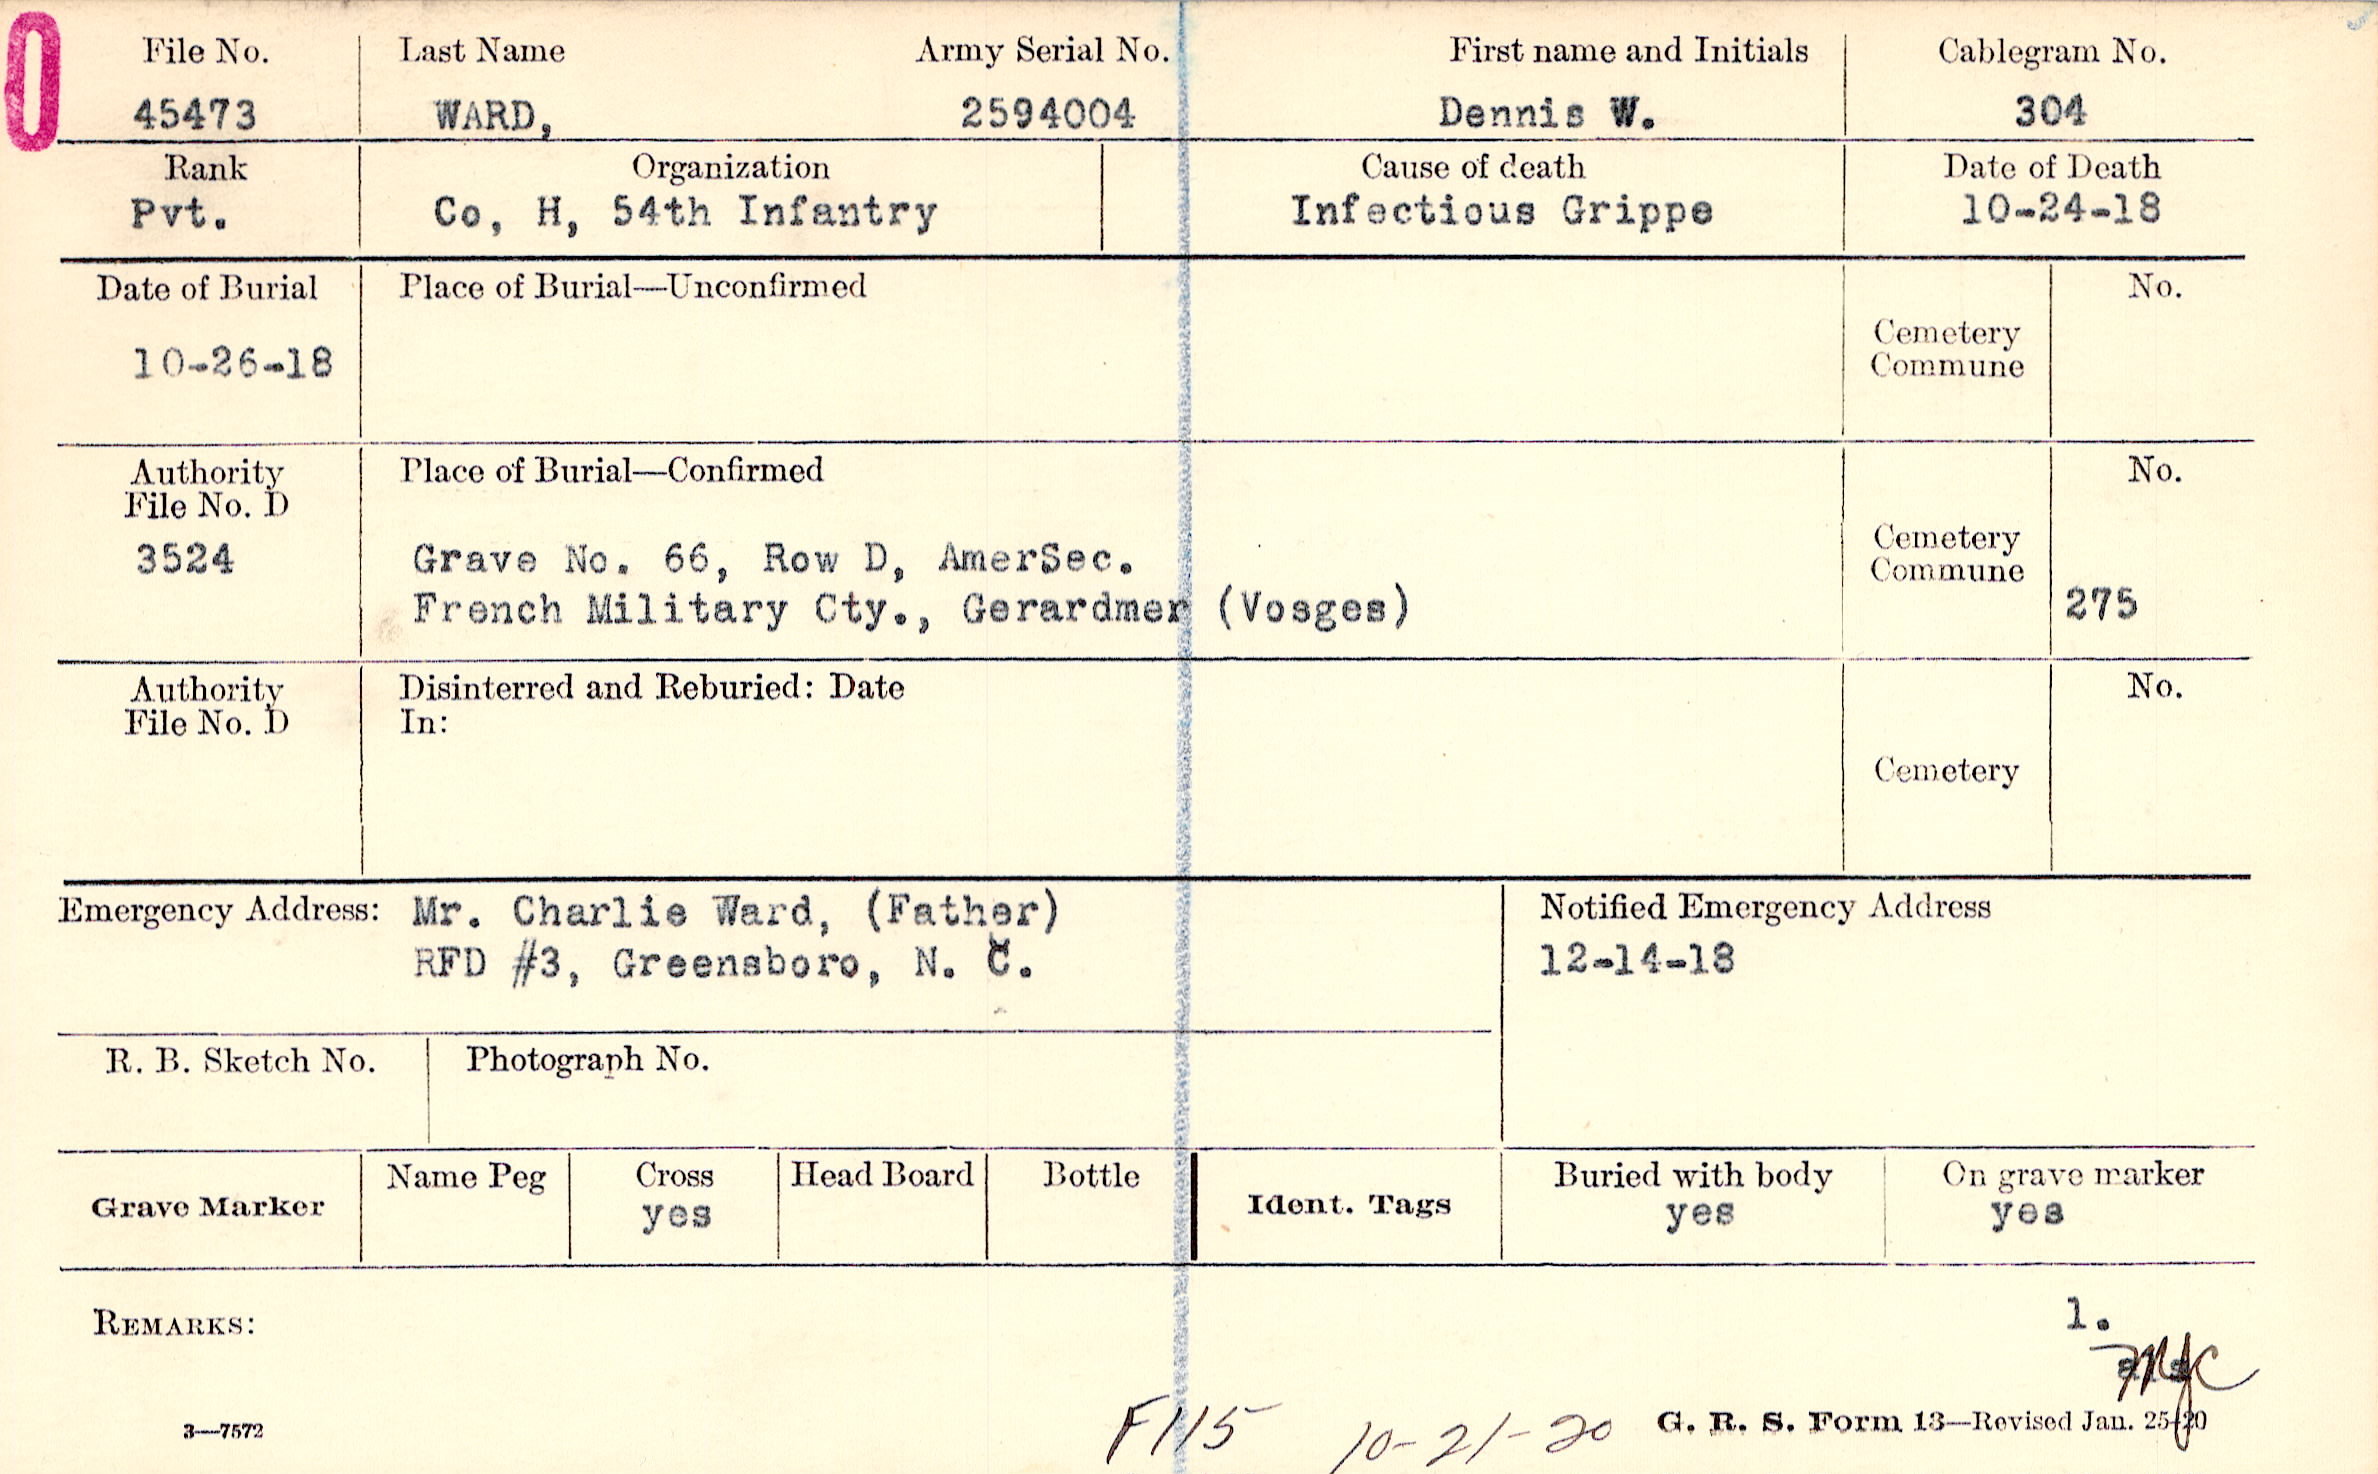 0
File No. Last Name Army Serial No. First name and Initials Cablegram No.
45473 WARD, 2594004 Dennis W. 304
Rank Organization Cause of death Date of Death
Pvt. Co, H, 54th Infantry Infectious Grippe 10-24-18
Date of Burial Place of Burial—Unconfirmed No.
Cemetery
Commune
10-26-18
Authority Place of Burial—Confirmed No.
File No. D
3524 Grave No. 66, Row D, AmerSec. Cemetery
Commune
French Military Cty., Gerardmer (Vosges) 275
Authority Disinterred and Reburied: Date No.
File No. D In:
Cemetery
Emergency Address: Mr. Charlie Ward, (Father) Notified Emergency Address
RFD #3, Greensboro, N. C. 12-14-18
R. B. Sketch No. Photograph No.
Grave Marker Name Peg Cross Head Board Bottle Ident. Tags Buried with body On grave marker
yes yes yes
REMARKS: 1.
3—7572 F115 10-21-20 G. R. S. Form 13—Revised Jan. 25-20